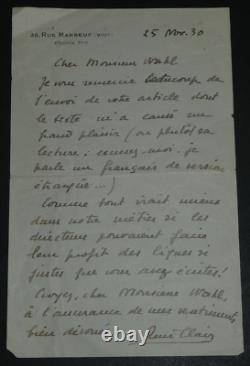 36, RUE MARBEUF (VIIIe)
25 Nov. 30
Cher Monsieur Wahl
Je vous remercie beaucoup de
l'envoi de votre article dont
le texte m'a causé un
grand plaisir (ou plutôt sa
lecture : excusez-moi. je
parle un français de version
étrangère...)
Comme tout irait mieux
dans notre métier si les
directeurs pouvaient faire
leur profit des lignes si
justes que vous avez écrites!
Croyez, cher Monsieur Wahl,
à l'assurance de mes sentiments
bien dévoués
René Clair